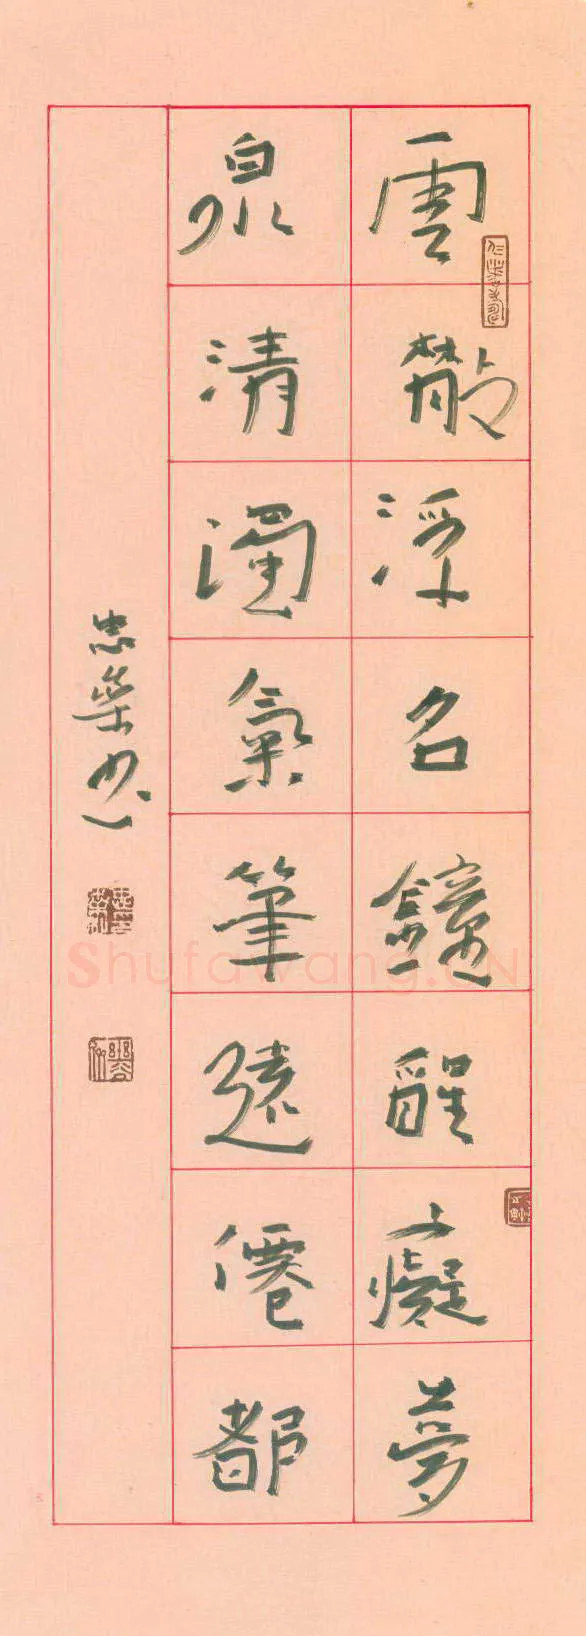 雲散浮名鐘醒癡夢
泉清濁氣筆遠僊都
忠榮书
Shufawang.CN